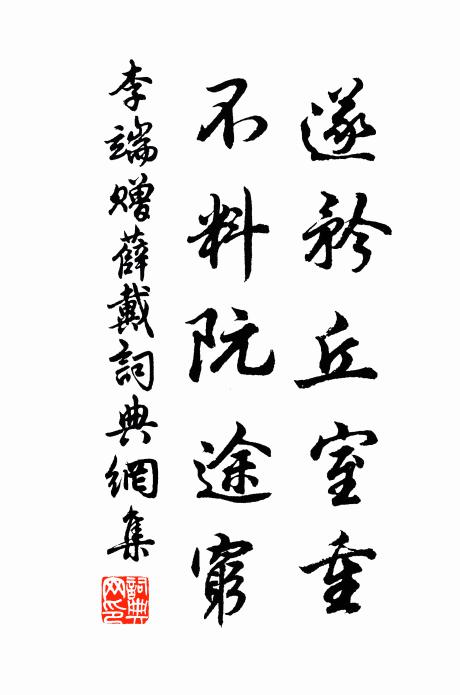 遂矜丘室重
不料阮途窮
李端贈薛戴詞典網集
詞典
网印